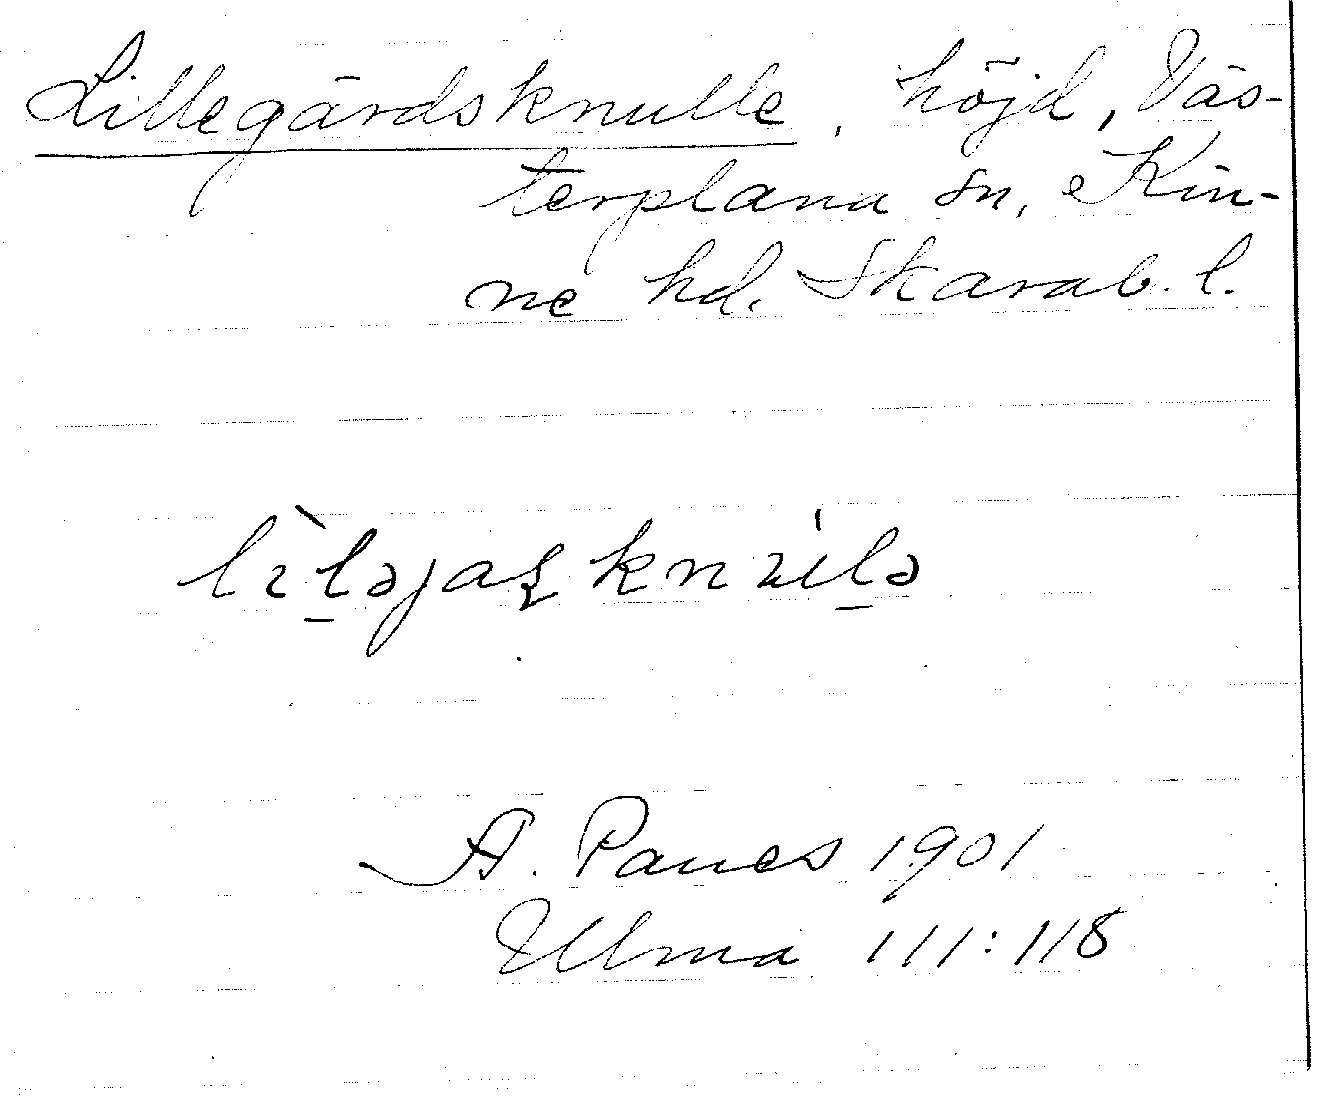 Lillegårdsknulle, höjd, Väs-
terplana sn, Kin-
ne hd. Skarab. l.
A. Panes 1901
Ulma 111:118